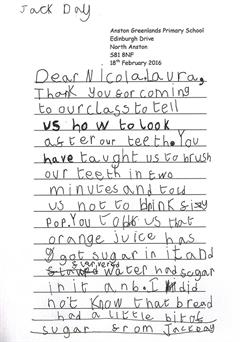 Jack Day
Anston Greenlands Primary School
Edinburgh Drive
North Anston
S81 8NF
18th February 2016
Dear Nicola,Laura,
Thank you for coming
to our class to tell
us how to look
after our teeth. You
have taught us to brush
our teeth in two
minutes and told
us not to drink fizzy
Pop. You told us that
orange juice has
got sugar in it and
water had sugar
in it and. I did
not know that bread
had a little bit of
sugar from Jack Day